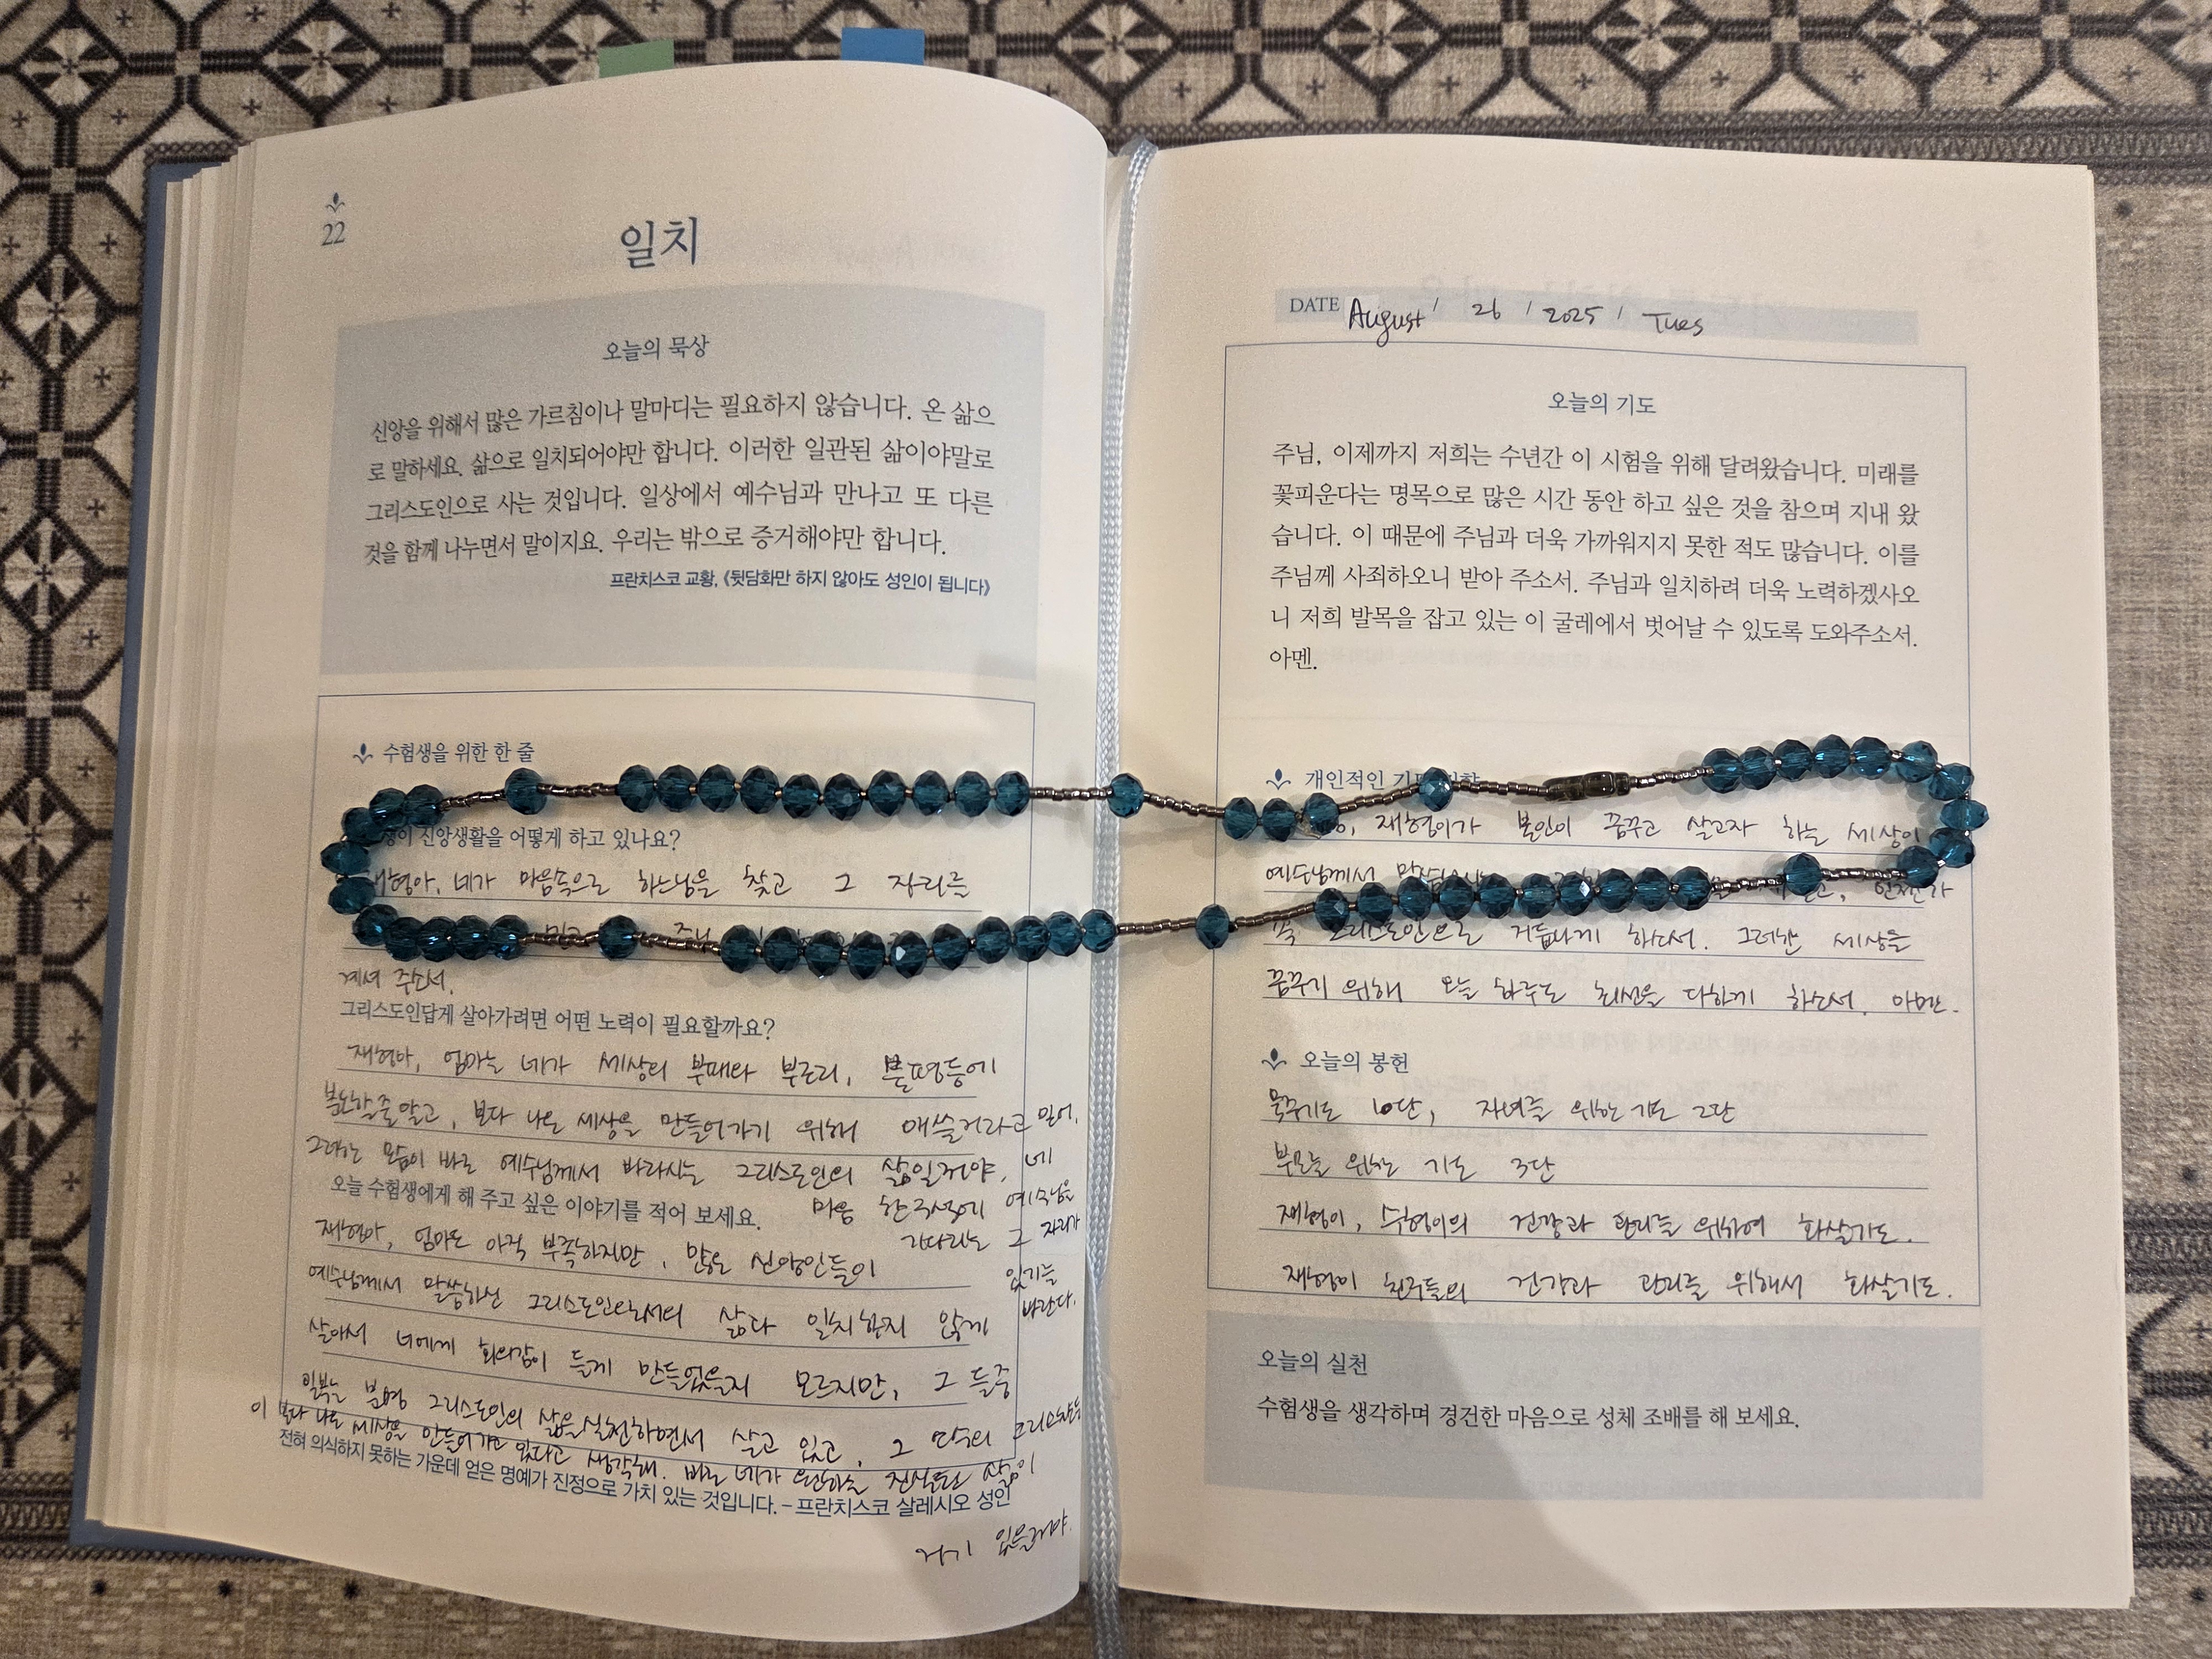 22
일치
오늘의 묵상
신앙을 위해서 많은 가르침이나 말마디는 필요하지 않습니다. 온 삶으
로 말하세요. 삶으로 일치되어야만 합니다. 이러한 일관된 삶이야말로
그리스도인으로 사는 것입니다. 일상에서 예수님과 만나고 또 다른
것을 함께 나누면서 말이지요. 우리는 밖으로 증거해야만 합니다.
프란치스코 교황, 《뒷담화만 하지 않아도 성인이 됩니다》
수험생을 위한 한 줄
신앙생활을 어떻게 하고 있나요?
네가 마음속으로 하느님을 찾고 그 진리를
계셔 주소서.
그리스도인답게 살아가려면 어떤 노력이 필요할까요?
재형아, 엄마는 네가 세상의 부패와 부조리, 불평등에
분노할줄 알고, 보다 나은 세상을 만들어가기 위해 애쓸거라고 믿어.
그러는 모습이 바로 예수님께서 바라시는 그리스도인의 삶일거야. 네
마음 한구석에 예수님을
기다리는 그 자리가
있기를
바란다.
오늘 수험생에게 해 주고 싶은 이야기를 적어 보세요.
재형아, 엄마도 아직 부족하지만, 많은 신앙인들이
예수님께서 말씀하신 그리스도인으로서의 삶과 일치하지 않게
살아서 너에게 회의감이 들게 만들었을지 모르지만, 그 들중
일부는 분명 그리스도인의 삶을 실천하면서 살고 있고, 그 다수의 그리스챤들
이 보다 나은 세상을 만들어가고 있다고 생각해. 바로 네가 원하는 진실된 삶이
거기 있을거야.
전혀 의식하지 못하는 가운데 얻은 명예가 진정으로 가치 있는 것입니다. – 프란치스코 살레시오 성인
DATE August / 26 / 2025 / Tues
오늘의 기도
주님, 이제까지 저희는 수년간 이 시험을 위해 달려왔습니다. 미래를
꽃피운다는 명목으로 많은 시간 동안 하고 싶은 것을 참으며 지내 왔
습니다. 이 때문에 주님과 더욱 가까워지지 못한 적도 많습니다. 이를
주님께 사죄하오니 받아 주소서. 주님과 일치하려 더욱 노력하겠사오
니 저희 발목을 잡고 있는 이 굴레에서 벗어날 수 있도록 도와주소서.
아멘.
개인적인
재형이가 본인이 꿈꾸고 살고자 하는 세상이
예수님께서 언젠가
꼭 그리스도인으로 거듭나게 하소서. 그러한 세상을
꿈꾸기 위해 오늘 하루도 최선을 다하게 하소서. 아멘.
오늘의 봉헌
묵주기도 10단, 자녀를 위한 기도 2단
부모를 위한 기도 3단
재형이, 수형이의 건강과 관리를 위하여 화살기도.
재형이 친구들의 건강과 관리를 위해서 화살기도.
오늘의 실천
수험생을 생각하며 경건한 마음으로 성체 조배를 해 보세요.